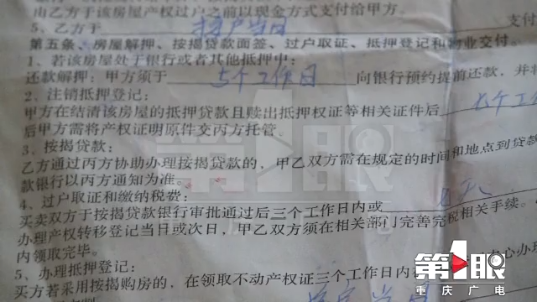 由乙方于该房屋产权过户之前以现金方式支付给甲方。
5、乙方于 接户当日 支付
第五条、房屋解押、按揭贷款面签、过户取证、抵押登记和物业交付。
1、若该房屋处于银行或者其他抵押中：
还款解押：甲方须于 5个工作日 向银行预约提前还款，并将
2、注销抵押登记：
甲方在结清该房屋的抵押贷款且赎出抵押权证等相关证件后 七个工
后甲方需将产权证明原件交丙方托管。
3、按揭贷款：
乙方通过丙方协助办理按揭贷款的，甲乙双方需在规定的时间和地点到贷款
款银行以丙方通知为准。
4、过户取证和缴纳税费：
买卖双方于按揭贷款银行审批通过后三个工作日内或
办理产权转移登记当日或次日，甲乙双方须在相关部门完善完税相关手续。
内领取完毕。
5、办理抵押登记：
买方若采用按揭购房的，在领取不动产权证三个工作日内 心办
第1眼
第1眼
重庆广电